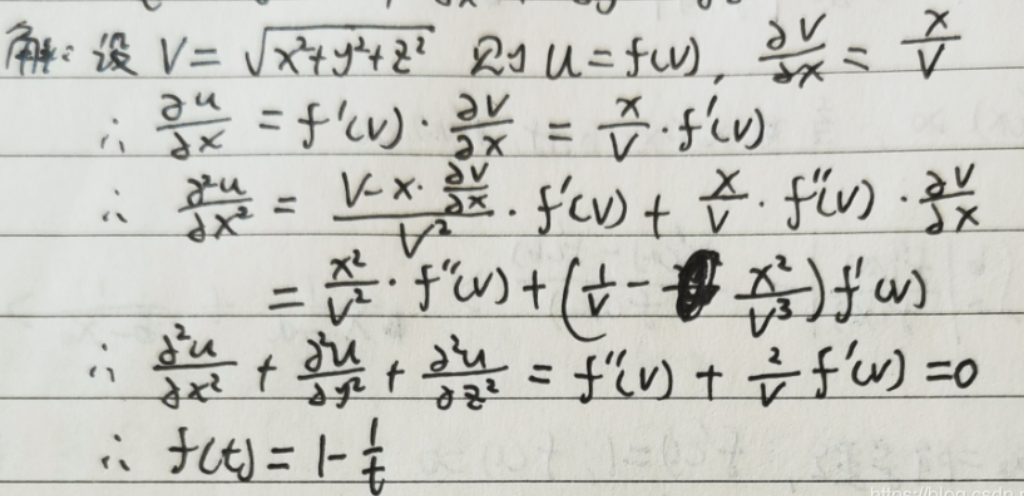 解：设 V = √(x²+y²+z²) 则 u = f(v), ∂V/∂x = x/V
∴ ∂u/∂x = f'(v) · ∂V/∂x = x/V · f'(v)
∴ ∂²u/∂x² = (V - x · ∂V/∂x)/V² · f'(v) + x/V · f''(v) · ∂V/∂x
= x²/V² · f''(v) + (1/V - x²/V³) f'(v)
∴ ∂²u/∂x² + ∂²u/∂y² + ∂²u/∂z² = f''(v) + 2/V f'(v) = 0
∴ f(t) = 1 - 1/t